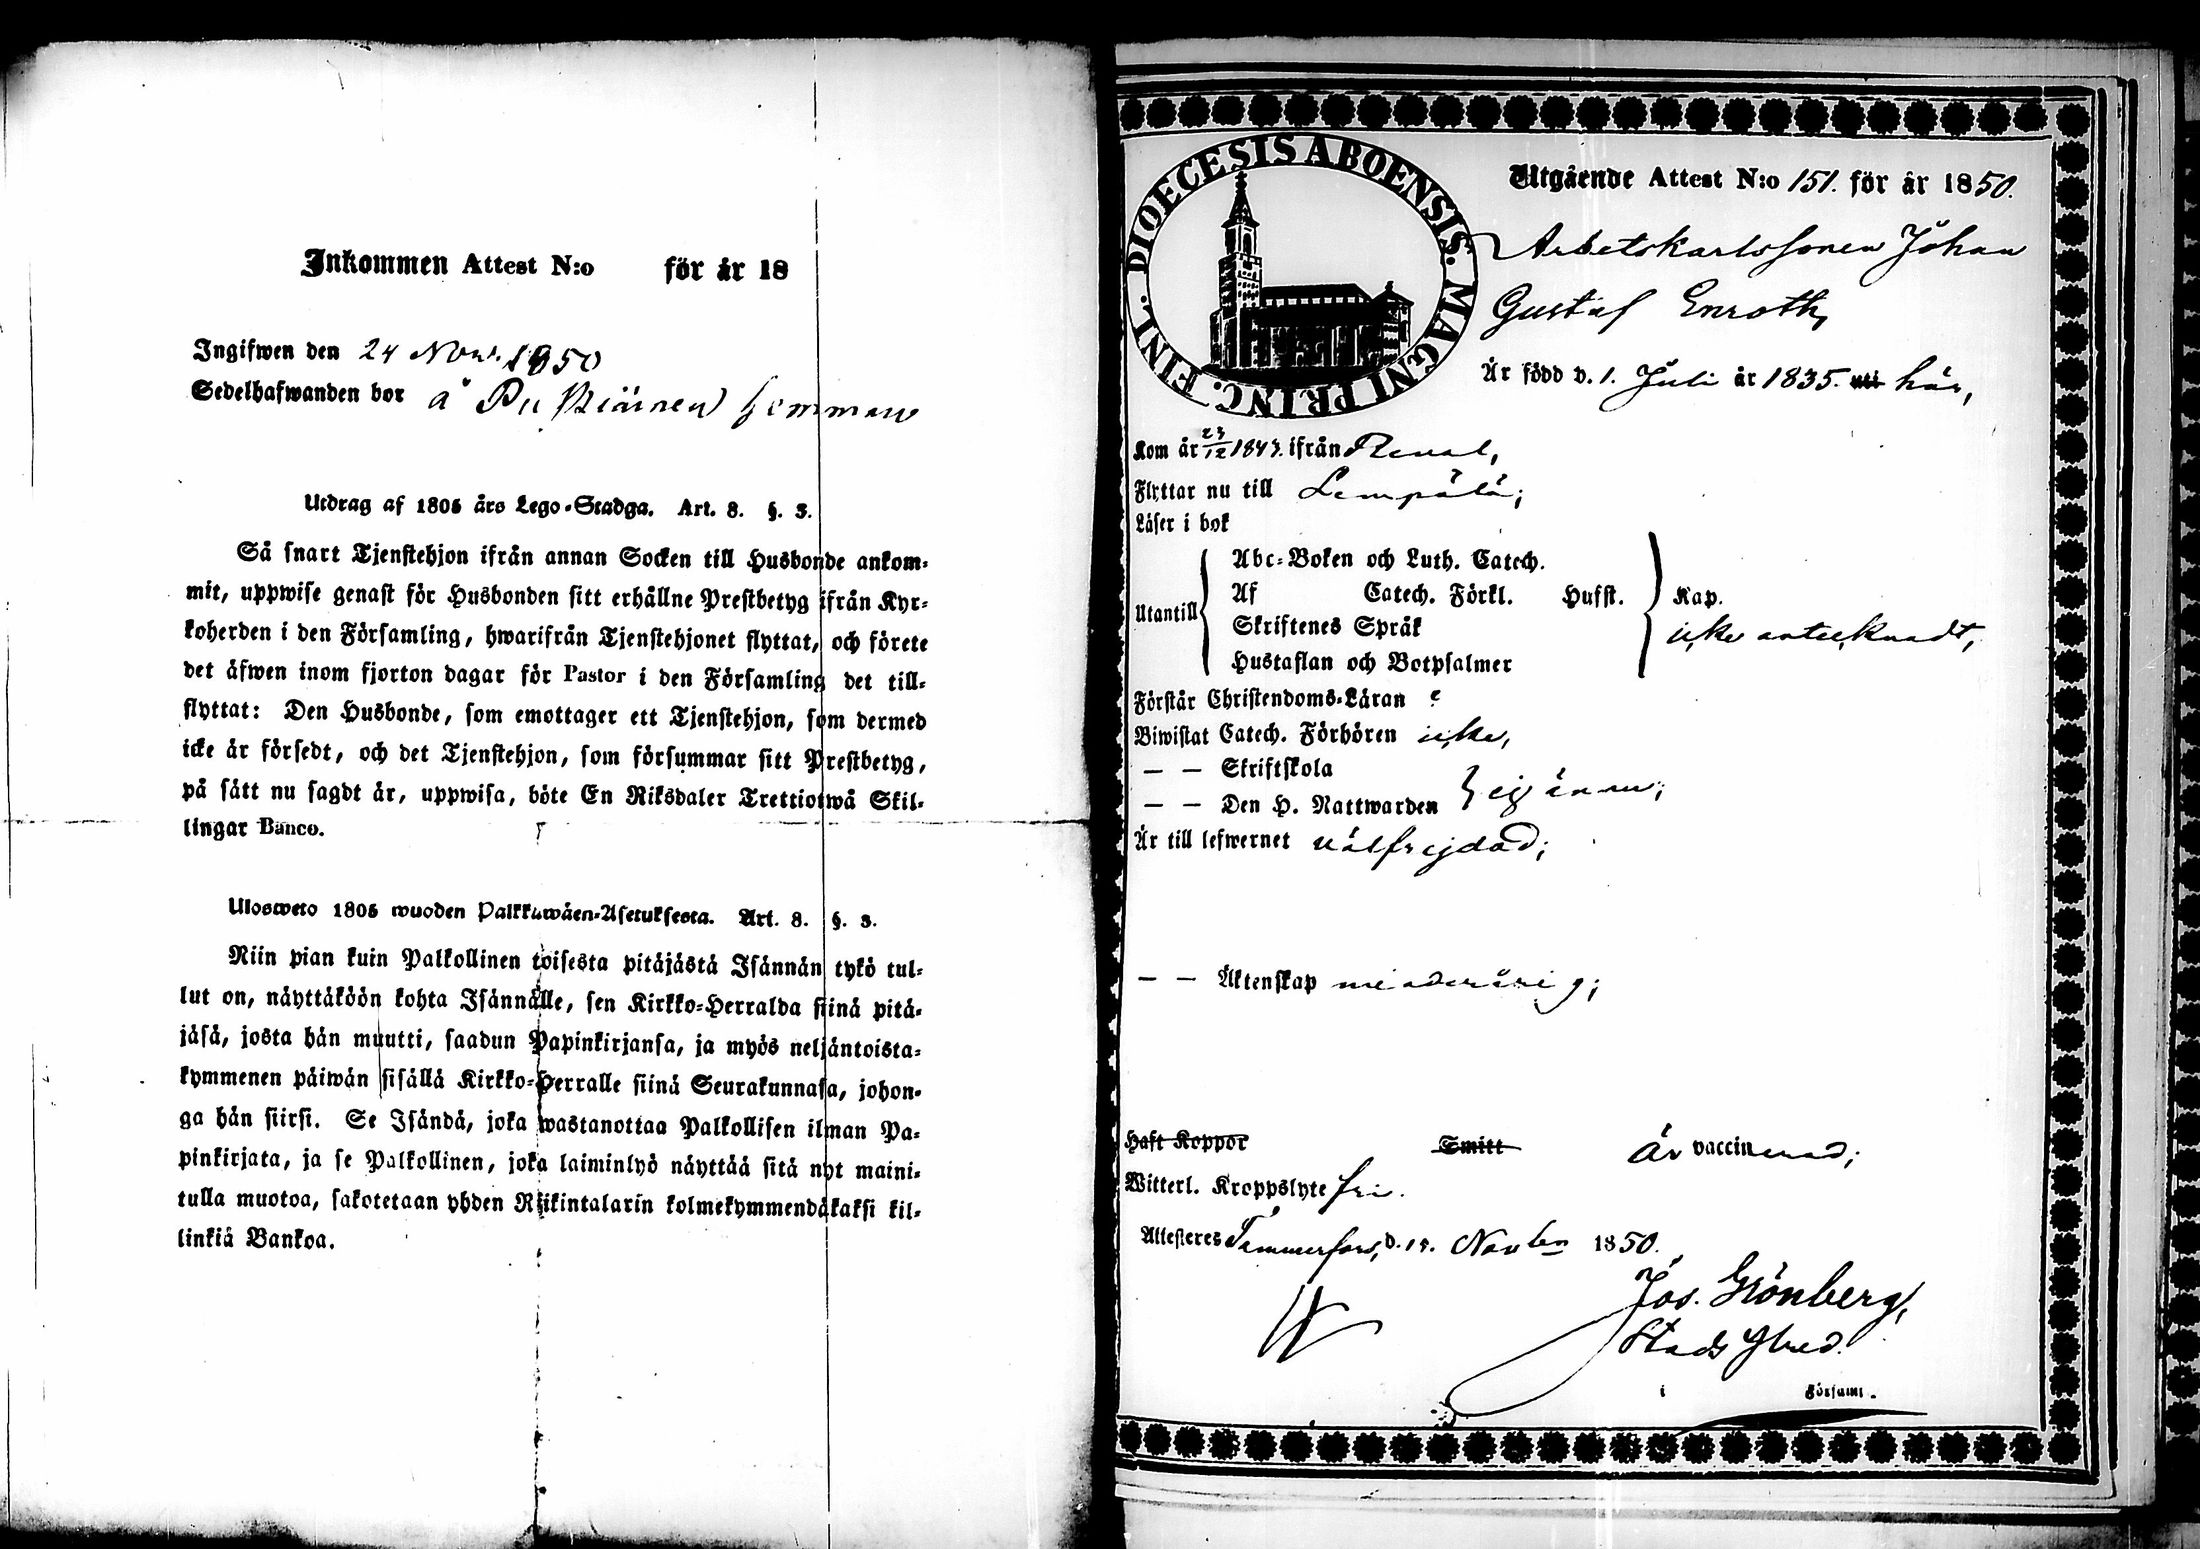 Inkommen Attest N:o för år 18
Ingifwen den 24 Nov. 1850
Sedelhafwanden bor å hemman
Utdrag af 1805 års Lego-Stadga. Art. 8. §. 3.
Så snart Tjenstehjon ifrån annan Socken till Husbonde ankom-
mit, uppwise genast för Husbonden sitt erhållne Prestbetyg ifrån Kyr-
koherden i den Församling, hwarifrån Tjenstehjonet flyttat, och förete
det äfwen inom fjorton dagar för Pastor i den Församling det till-
flyttat: Den Husbonde, som emottager ett Tjenstehjon, som dermed
icke är försedt, och det Tjenstehjon, som försummar sitt Prestbetyg,
på sätt nu sagdt är, uppwisa, böte En Riksdaler Trettiotwå Skil-
lingar Banco.
Ulosweto 1805 wuoden Palkkawäen-Asetuksesta. Art. 8. §. 3.
Niin pian kuin Palkollinen toisesta pitäjästä Isännän tykö tul-
lut on, näyttäköön kohta Isännälle, sen Kirkko-Herralda siinä pitä-
jäsä, josta hän muutti, saadun Papinkirjansa, ja myös neljäntoista-
kymmenen päiwän sisällä Kirkko-Herralle siinä Seurakunnasa, johon-
ga hän siirsi. Se Isändä, joka wastanottaa Palkollisen ilman Pa-
pinkirjata, ja se Palkollinen, joka laiminlyö näyttää sitä nyt maini-
tulla muotoa, sakotetaan yhden Riikintalarin kolmekymmendäkaksi kil-
linkiä Bankoa.
DIOECESIS ABOENSIS. MAGNI PRINC. FINL.
Utgående Attest N:o 151. för år 1850.
Arbetskarlssonen Johan
Gustaf Enroth,
Är född d. 1. Juli år 1835. uti här,
Kom år 23/12 1847. ifrån Reval,
Flyttar nu till Lempälä;
Läser i bok
Utantill
Abc-Boken och Luth. Catech.
Af Catech. Förkl. Husst. Kap.
Skriftenes Språk icke antecknadt,
Hustaflan och Botpsalmer
Förstår Christendoms-Läran
Biwistat Catech. Förhören icke,
— — Skriftskola
— — Den H. Nattwarden ej ännu;
Är till lefwernet välfrejdad;
— — Äktenskap minderårig;
Haft Koppor Smitt Är vaccinerad;
Witterl. Kroppslyte fri.
Attesteres Tammerfors, d. 15. Novben 1850.
Jos. Grönberg,
Stads
i Församl.